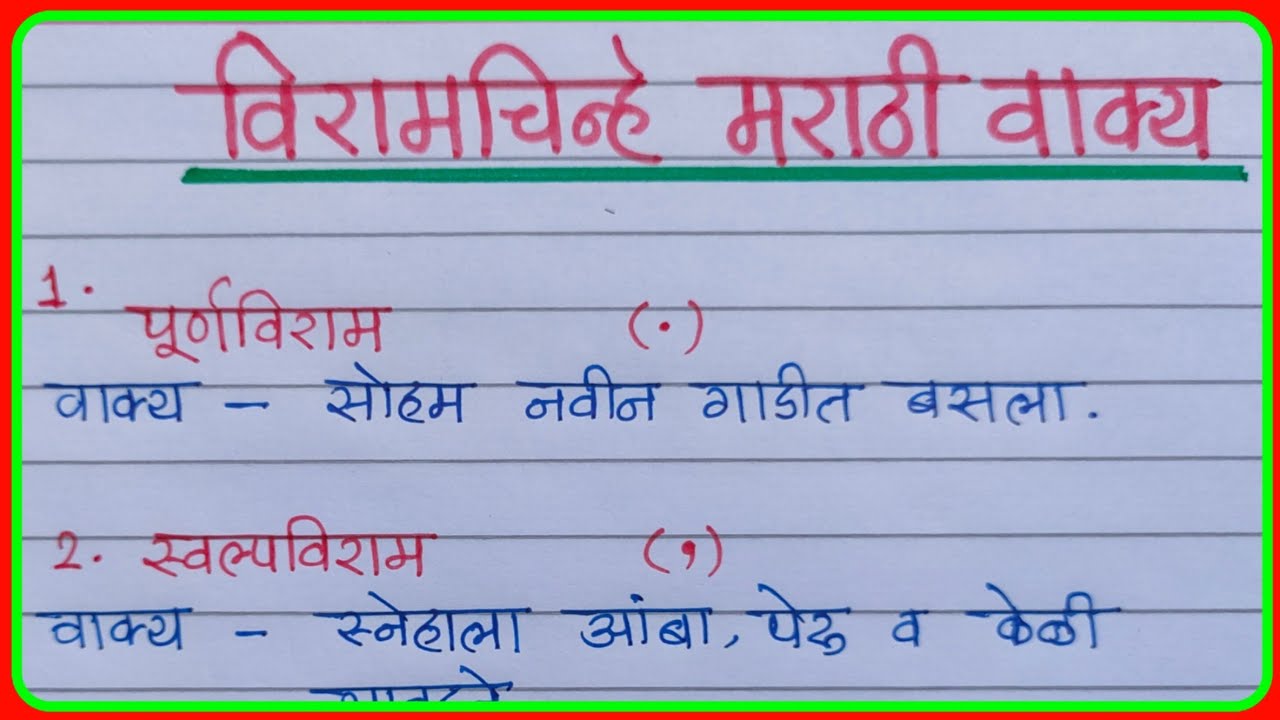 विरामचिन्हे मराठी वाक्य
1. पूर्णविराम (.)
वाक्य – सोहम नवीन गाडीत बसला.
2. स्वल्पविराम (,)
वाक्य – स्नेहाला आंबा, पेरु व केळी